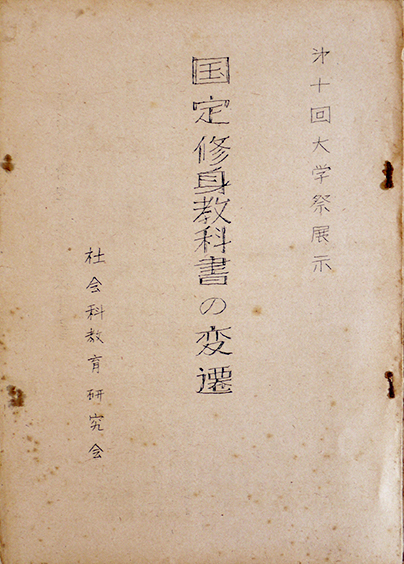 第十回大学祭展示
国定修身教科書の変遷
社会科教育研究会